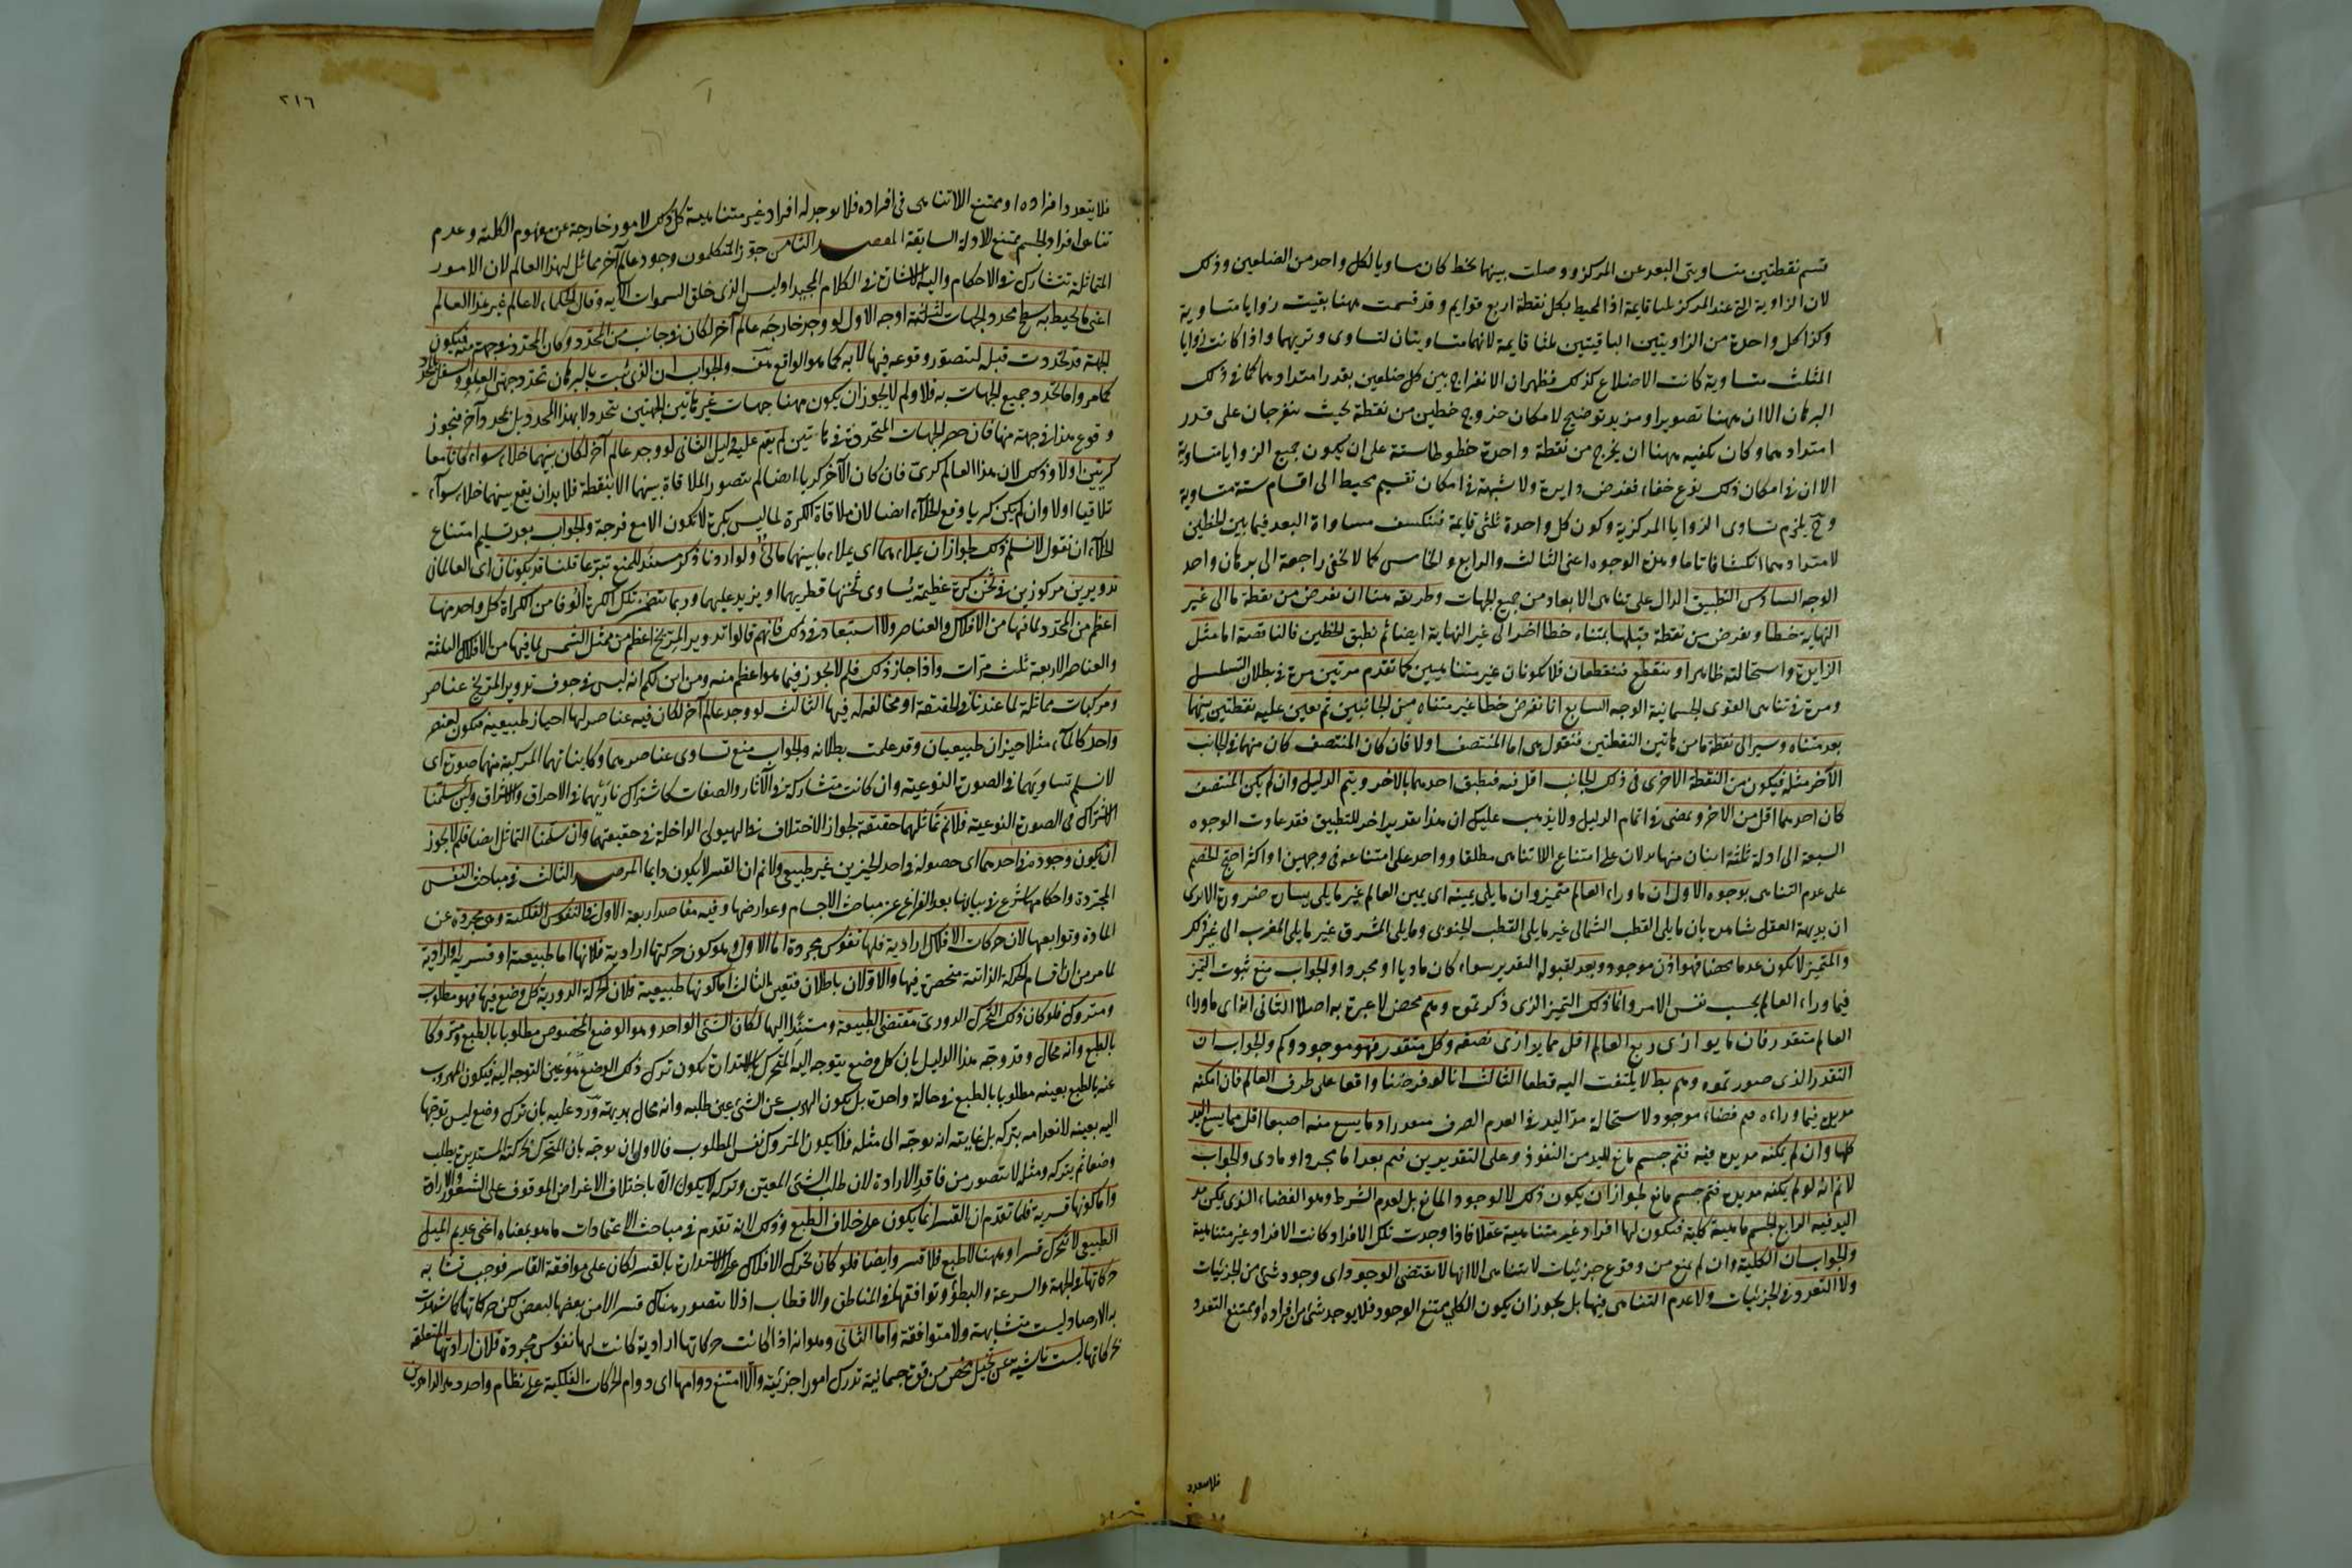 قسم نقطتين متساويتى البعد عن المركز ووصلت بينهما بخط كان مساويا لكل واحد من الضلعين وذلك
لان الزاوية التى عند المركز ثلثا قايمة اذ المحيط بكل نقطة اربع قوايم وقد قسمت ههنا بقيت زوايا متساوية
وكذا كل واحدة من الزاويتين الباقيتين ثلثا قايمة لانهما متساويتان لتساوى وتريهما واذا كانت زوايا
المثلث متساوية كانت الاضلاع كذلك فظهر ان الانفراج بين كل ضلعين بقدر امتدادهما كما فى ذلك
البرهان الا ان ههنا تصويرا ومزيد توضيح لامكان خروج خطين من نقطة بحيث ينفرجان على قدر
امتدادهما وكان يكفيه ههنا ان يخرج من نقطة واحدة خطوطا ستة على ان يكون جميع الزوايا متساوية
الا ان فى امكان ذلك نوع خفاء ففرض دايرة ولا شبهة فى امكان تقسيم محيط الى اقسام ستة متساوية
وح يلزم تساوى الزوايا المركزية وكون كل واحدة ثلثى قايمة فينكشف مساواة البعد فيما بين الخطين
لامتدادهما انكشافا تاما وهذه الوجوه اعنى الثالث والرابع والخامس كما لا يخفى راجعة الى برهان واحد
الوجه السادس التطبيق الدال على تناهى الابعاد من جميع الجهات وطريقه هنا ان نفرض من نقطة ما الى غير
النهاية خطا ونفرض من نقطة قبلها بمتناه خطا اخر الى غير النهاية ايضا ثم نطبق الخطين فالناقصة اما مثل
الزايدة واستحالته ظاهرا او ينقطع فينقطعان فلا يكونان غير متناهيين كما تقدم مرتين مرة فى بطلان التسلسل
ومرة فى تناهى القوى الجسمانية الوجه السابع انا نفرض خطا غير متناه من الجانبين ثم نعين عليه نقطتين بينهما
بعد متناه وسير الى نقطة ما من هاتين النقطتين فنقول هى اما المنتصف او لا فان كان المنتصف كان منها فى الجانب
الآخر مثله فيكون من النقطة الاخرى فى ذلك الجانب اقل منه فنطبق احدهما بالاخر ويتم الدليل وان لم يكن المنتصف
كان احدهما اقل من الاخر ونمضى فى اتمام الدليل ولا يذهب عليك ان هذا تقدير اخر للتطبيق فقد عادت الوجوه
السبعة الى ادلة ثلثة اثنان منها يدلان على امتناع اللاتناهى مطلقا وواحد على امتناعه فى وجهين او اكثر احتج الخصم
على عدم التناهى بوجوه الاول ان ما وراء العالم متميز وان ما يلى يمينه اى يمين العالم غير ما يلى يساره ضرورة الا يرى
ان بديهة العقل شاهدة بان ما يلى القطب الشمالى غير ما يلى القطب الجنوبى وما يلى المشرق غير ما يلى المغرب الى غير ذلك
والمتميز لا يكون عدما محضا فهو اذن موجود وبعد لقبوله التقدير سواء كان ماديا او مجردا والجواب منع ثبوت التميز
فيما وراء العالم بحسب نفس الامر وانما ذلك التميز الذى ذكرتموه وهم محض لا عبرة به اصلا الثانى انه اى ما وراء
العالم متقدر فان ما يوازى ربع العالم اقل مما يوازى نصفه وكل متقدر فهو موجود وكم والجواب ان
التقدر الذى صورتموه وهم بط لا يلتفت اليه قطعا الثالث انا لو فرضنا واقفا على طرف العالم فان امكنه
مد يده فيما وراءه فثم فضاء موجود لاستحالة مد اليد فى العدم الصرف متقدر اذ ما يسع منه اصبعا اقل مما يسع اليد
كلها وان لم يمكنه مد يده فيه فثم جسم مانع لليد من النفوذ وعلى التقديرين فثم بعد اما مجرد او مادى والجواب
لا نم انه لو لم يمكنه مد يده فثم جسم مانع لجواز ان يكون ذلك لا لوجود المانع بل لعدم الشرط وهو الفضاء الذى يمكن مد
اليد فيه الرابع الجسم ماهية كلية فيكون لها افراد غير متناهية عقلا فاذا وجدت تلك الافراد كانت الافراد غير متناهية
والجواب ان الكلية وان لم تمنع من وقوع جزئيات لا تتناهى الا انها لا تقتضى الوجود اى وجود شئ من الجزئيات
ولا التعدد فى الجزئيات ولا عدم التناهى فيها بل يجوز ان يكون الكلى ممتنع الوجود فلا يوجد شئ من افراده او ممتنع التعدد
فلا يتعدد
٣١٦
فلا يتعدد افراده او ممتنع اللاتناهى فى افراده فلا يوجد له افراد غير متناهية كل ذلك لامور خارجة عن مفهوم الكلية وعدم
تناهى افراد الجسم ممتنع للادلة السابقة المقصد الثامن جوز المتكلمون وجود عالم آخر مماثل لهذا العالم لان الامور
المتماثلة تتشارك فى الاحكام واليه الاشارة فى الكلام المجيد اوليس الذى خلق السموات الآية وقال الحكماء لا عالم غير هذا العالم
اعنى ما يحيط به سطح محدد الجهات لثلثة اوجه الاول لو وجد خارجه عالم آخر لكان فى جانب من المحدد وكان المحدد فى جهة منه فتكون
الجهة قد تحددت قبله ليتصور وقوعه فيها لا به كما هو الواقع هف والجواب ان الذى ثبت بالبرهان تحدد جهتى العلو والسفل بالمحدد
كما مر واما تحدد جميع الجهات به فلا ولم لا يجوز ان يكون ههنا جهات غير هاتين الجهتين يتحدد لا بهذا المحدد بل بمحدد آخر فيجوز
وقوع هذا فى جهة منها فان حصر الجهات المتحددة فى هاتين لم يقم عليه دليل الثانى لو وجد عالم آخر لكان بينهما خلاء سواء كانا معا
كريين اولا وذلك لان هذا العالم كرى فان كان الآخر كريا ايضا لم يتصور الملاقاة بينهما الا بنقطة فلا بد ان يقع بينهما خلاء سواء
تلاقيا اولا وان لم يكن كريا وقع الخلاء ايضا لان ملاقاة الكرة لما ليس بكرة لا تكون الا مع فرجة والجواب بعد تسليم امتناع
الخلاء ان نقول لا نسلم ذلك لجواز ان يملاءهما اى يملاء ما بينهما مالئ ولو اردنا ذكر مستند للمنع تبرعا قلنا قد يكونان اى العالمان
تدويرين مركوزين فى ثخن كرة عظيمة يساوى ثخنها قطريهما او يزيد عليهما وربما تتضمن تلك الكرة الوفا من الكرات كل واحد منها
اعظم من المحدد لما فيها من الافلاك والعناصر ولا استبعاد فى ذلك فانهم قالوا تدوير المريخ اعظم من ممثل الشمس بما فيها من الافلاك الثلثة
والعناصر الاربعة ثلث مرات واذا جاز ذلك فلم لا يجوز فيما هو اعظم منه ومن اين لكم انه ليس فى جوف تدوير المريخ عناصر
ومركبات مماثلة لما عندنا فى الحقيقة او مخالفة له فيها الثالث لو وجد عالم آخر لكان فيه عناصر لها احياز طبيعية فيكون لعنصر
واحد كالماء مثلا حيزان طبيعيان وقد علمت بطلانه والجواب منع تساوى عناصرهما وكايناتهما المركبة منها صورة اى
لا نسلم تساويهما فى الصورة النوعية وان كانت متشاركة فى الآثار والصفات كاشتراك ناريهما فى الاحراق والاشراق ولئن سلمنا
الاشتراك فى الصورة النوعية فلا نم تماثلهما حقيقة لجواز الاختلاف فى الهيولى الداخلة فى حقيقتهما وان سلمنا التماثل ايضا فلم لا يجوز
ان يكون وجوده فى احدهما اى حصوله فى احد الحيزين غير طبيعى ولا نم ان القسر لا يكون دايما المرصد الثالث فى مباحث النفس
المجردة واحكامها شرع فى بيانها بعد الفراغ عن مباحث الاجسام وعوارضها وفيه مقاصد اربعة الاول فى النفوس الفلكية وهى مجردة عن
المادة وتوابعها لان حركات الافلاك ارادية فلها نفوس مجردة اما الاول وهو كون حركتها ارادية فلانها اما طبيعية او قسرية او ارادية
لما مر من ان اقسام الحركة الذاتية منحصرة فيها والاولان باطلان فتعين الثالث اما كونها طبيعية فلان الحركة الدورية كل وضع فيها فهو مطلوب
ومتروك فلو كان ذلك التحرك الدورى مقتضى الطبيعة ومستندا اليها لكان الشئ الواحد وهو الوضع المخصوص مطلوبا بالطبع ومتروكا
بالطبع وانه محال وقد وجه هذا الدليل بان كل وضع يتوجه اليه المتحرك بالاستدارة يكون ترك ذلك الوضع هو عين التوجه اليه فيكون المهروب
عنه بالطبع بعينه مطلوبا بالطبع فى حالة واحدة بل يكون الهرب عن الشئ عين طلبه وانه محال بديهة ورد عليه بان ترك وضع ليس توجها
اليه بعينه لانعدامه بتركه بل غايته انه توجه الى مثله فلا يكون المتروك نفس المطلوب فالاولى ان يوجه بان المتحرك بحركته المستديرة يطلب
وضعا ثم يتركه ومثله لا يتصور من فاقد الارادة لان طلب الشئ المعين وتركه لا يكون الا باختلاف الاغراض الموقوف على الشعور والارادة
واما كونها قسرية فلما تقدم ان القسر انما يكون على خلاف الطبع وذلك لانه تقدم فى مباحث الاعتمادات ما هو بمعناه اعنى عديم الميل
الطبيعى لا يتحرك قسرا وههنا لا طبع فلا قسر وايضا فلو كان تحرك الافلاك على الاستدارة بالقسر لكان على موافقة القاسر فوجب تشابه
حركاتها فى الجهة والسرعة والبطؤ وتوافقها فى المناطق والاقطاب اذ لا يتصور هناك قسر الا من بعضها لبعض لكن حركاتها كما شهدت
به الارصاد ليست متشابهة ولا متوافقة واما الثانى وهو انه اذا كانت حركاتها ارادية كانت لها نفوس مجردة فلان ارادتها المتعلقة
بحركاتها ليست ناشية عن تخيل محض من قوة جسمانية تدرك امورا جزئية والا امتنع دوامها اى دوام الحركات الفلكية على نظام واحد